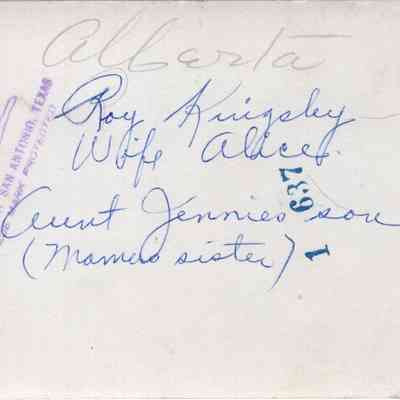 Alberta
Roy Kingsley
Wife Alice.
Aunt Jennies son
(Mama's sister)
SAN ANTONIO, TEXAS
637
1